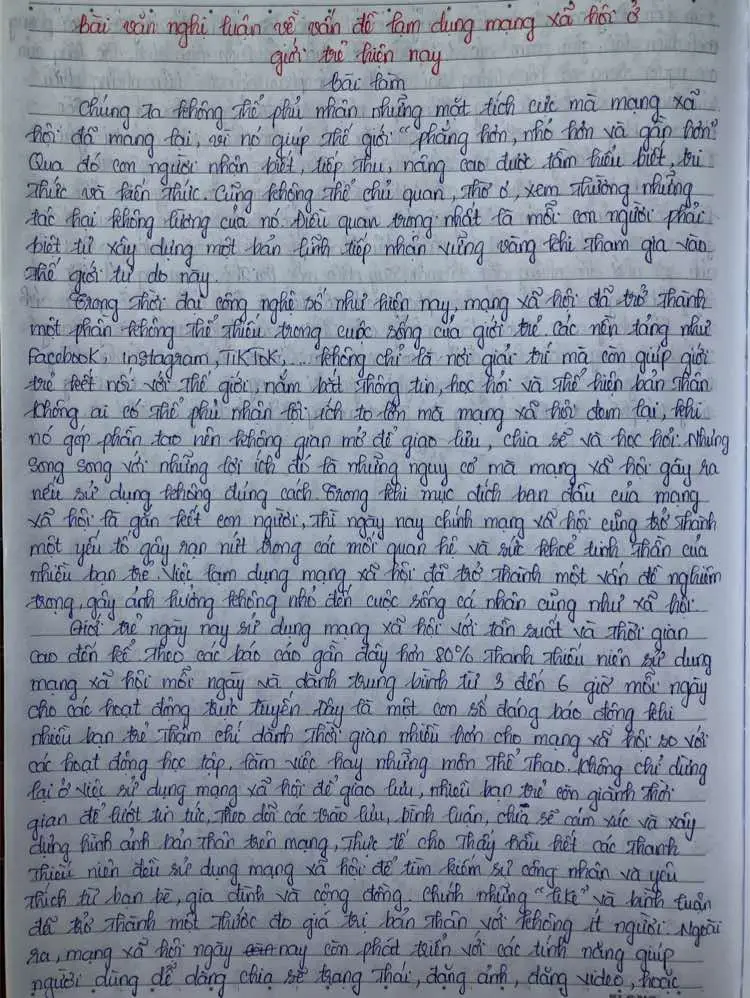 bài văn nghị luận về vấn đề lạm dụng mạng xã hội ở
giới trẻ hiện nay
bài làm
Chúng ta không thể phủ nhận những mặt tích cực mà mạng xã
hội đã mang lại, vì nó giúp thế giới "phẳng hơn, nhỏ hơn và gần hơn".
Qua đó con người nhận biết, tiếp thu, nâng cao được tầm hiểu biết, tri
thức và kiến thức. Cũng không thể chủ quan, thờ ơ, xem thường những
tác hại không lường của nó. Điều quan trọng nhất là mỗi con người phải
biết tự xây dựng một bản lĩnh tiếp nhận vững vàng khi tham gia vào
thế giới tự do này.
Trong thời đại công nghệ số như hiện nay, mạng xã hội đã trở thành
một phần không thể thiếu trong cuộc sống của giới trẻ các nền tảng như
Facebook, Instagram, TikTok,... không chỉ là nơi giải trí mà còn giúp giới
trẻ kết nối với thế giới, nắm bắt thông tin, học hỏi và thể hiện bản thân
không ai có thể phủ nhận lợi ích to lớn mà mạng xã hội đem lại, khi
nó góp phần tạo nên không gian mở để giao lưu, chia sẽ và học hỏi. Nhưng
song song với những lợi ích đó là những nguy cơ mà mạng xã hội gây ra
nếu sử dụng không đúng cách. Trong khi mục đích ban đầu của mạng
xã hội là gắn kết con người, thì ngày nay chính mạng xã hội cũng trở thành
một yếu tố gây rạn nứt trong các mối quan hệ và sức khoẻ tinh thần của
nhiều bạn trẻ. Việc lạm dụng mạng xã hội đã trở thành một vấn đề nghiêm
trọng, gây ảnh hưởng không nhỏ đến cuộc sống cá nhân cũng như xã hội.
Giới trẻ ngày nay sử dụng mạng xã hội với tần suất và thời gian
cao đến kể theo các báo cáo gần đây hơn 80% thanh thiếu niên sử dụng
mạng xã hội mỗi ngày và dành trung bình từ 3 đến 6 giờ mỗi ngày
cho các hoạt động trực tuyến đây là một con số đáng báo động khi
nhiều bạn trẻ thậm chí dành thời gian nhiều hơn cho mạng xã hội so với
các hoạt động học tập, làm việc hay những môn thể thao. không chỉ dừng
lại ở việc sử dụng mạng xã hội để giao lưu, nhiều bạn trẻ còn giành thời
gian để lướt tin tức, theo dõi các trào lưu, bình luận, chia sẽ cảm xúc và xây
dựng hình ảnh bản thân trên mạng, thực tế cho thấy hầu hết các thanh
thiếu niên đều sử dụng mạng xã hội để tìm kiếm sự công nhận và yêu
thích từ bạn bè, gia đình và cộng đồng. chính những "like" và bình luận
đã trở thành một thước đo giá trị bản thân với không ít người. Ngoài
ra, mạng xã hội ngày nay còn phát triển với các tính năng giúp
người dùng dễ dàng chia sẽ trạng thái, đăng ảnh, đăng video, hoặc